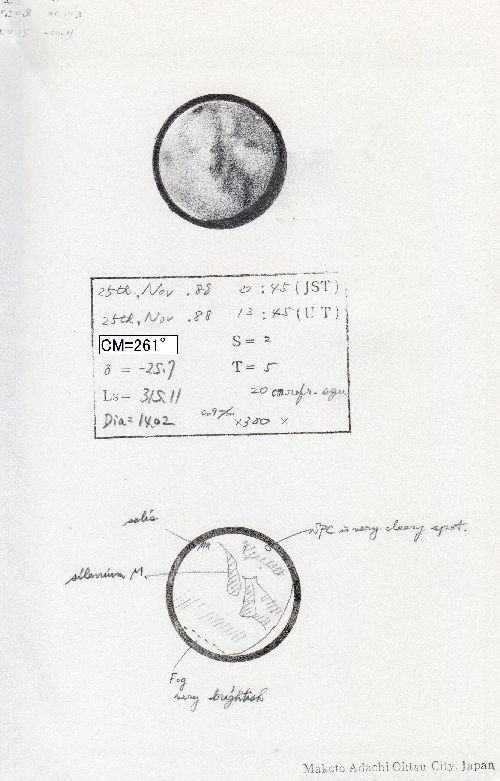 25th, Nov .88 20 : 45 (JST)
25th, Nov .88 13 : 45 (U T)
CM=261°
S = 2
δ = -25.7
T = 5
Ls= 315.11
20 cm refr.
Dia= 14.02
×300 ×
solis
NPC is very cleary spot.
silenium M.
Fog
very brightish
Makoto Adachi Ohtsu City, Japan